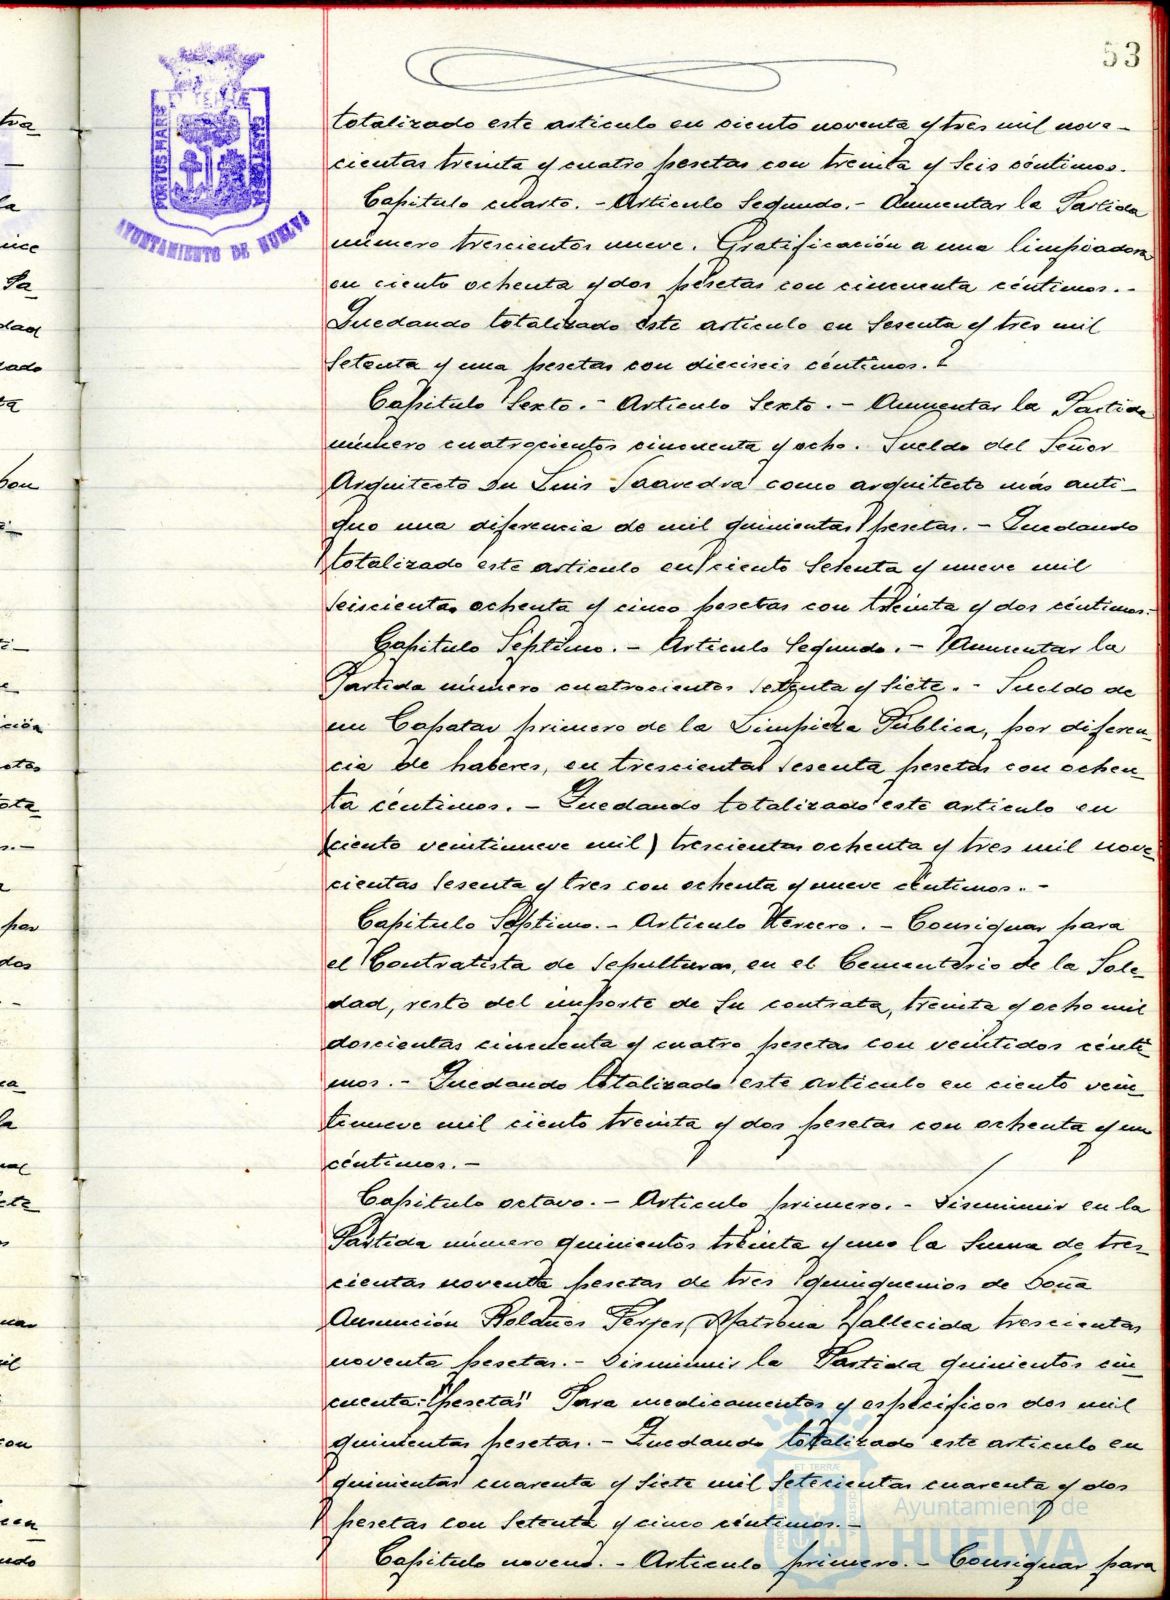 53
PORTUS MARIS ET TERRÆ CUSTODIA
AYUNTAMIENTO DE HUELVA
totalizado este articulo en ciento noventa y tres mil nove-
cientas treinta y cuatro pesetas con treinta y seis céntimos.
Capitulo cuarto. - Articulo Segundo. - Aumentar la Partida
número trescientos nueve. Gratificación a una limpiadora
en ciento ochenta y dos pesetas con cincuenta céntimos. -
Quedando totalizado este articulo en sesenta y tres mil
setenta y una pesetas con dieciseis céntimos.
Capitulo Sexto. - Articulo Sexto. - Aumentar la Partida
número cuatrocientos cincuenta y ocho. Sueldo del Señor
Arquitecto Dn Luis Saavedra como arquitecto más anti-
guo una diferencia de mil quinientas pesetas. - Quedando
totalizado este articulo en ciento setenta y nueve mil
seiscientas ochenta y cinco pesetas con treinta y dos céntimos. -
Capitulo Séptimo. - Articulo Segundo. - Aumentar la
Partida número cuatrocientos setenta y siete. - Sueldo de
un Capataz primero de la Limpieza Pública, por diferen-
cia de haberes, en trescientas sesenta pesetas con ochen-
ta céntimos. - Quedando totalizado este articulo en
(ciento veintinueve mil) trescientas ochenta y tres mil nove-
cientas sesenta y tres con ochenta y nueve céntimos. -
Capitulo Séptimo. - Articulo tercero. - Consignar para
el Contratista de Sepulturas, en el Cementerio de la Sole-
dad, resto del importe de su contrata, treinta y ocho mil
doscientas cincuenta y cuatro pesetas con veintidos cénti-
mos. - Quedando totalizado este articulo en ciento vein-
tinueve mil ciento treinta y dos pesetas con ochenta y un
céntimos. -
Capitulo octavo. - Articulo primero. - Disminuir en la
Partida número quinientos treinta y uno la suma de tres-
cientas noventa pesetas de tres quinquenios de Doña
Asunción Bolaños Matrona fallecida trescientas
noventa pesetas. - Disminuir la Partida quinientos cin-
cuenta: "peseta" Para medicamentos y especificos dos mil
quinientas pesetas. - Quedando totalizado este articulo en
quinientas cuarenta y siete mil setecientas cuarenta y dos
pesetas con setenta y cinco céntimos. -
Capitulo noveno. - Articulo primero. - Consignar para
Ayuntamiento de
HUELVA